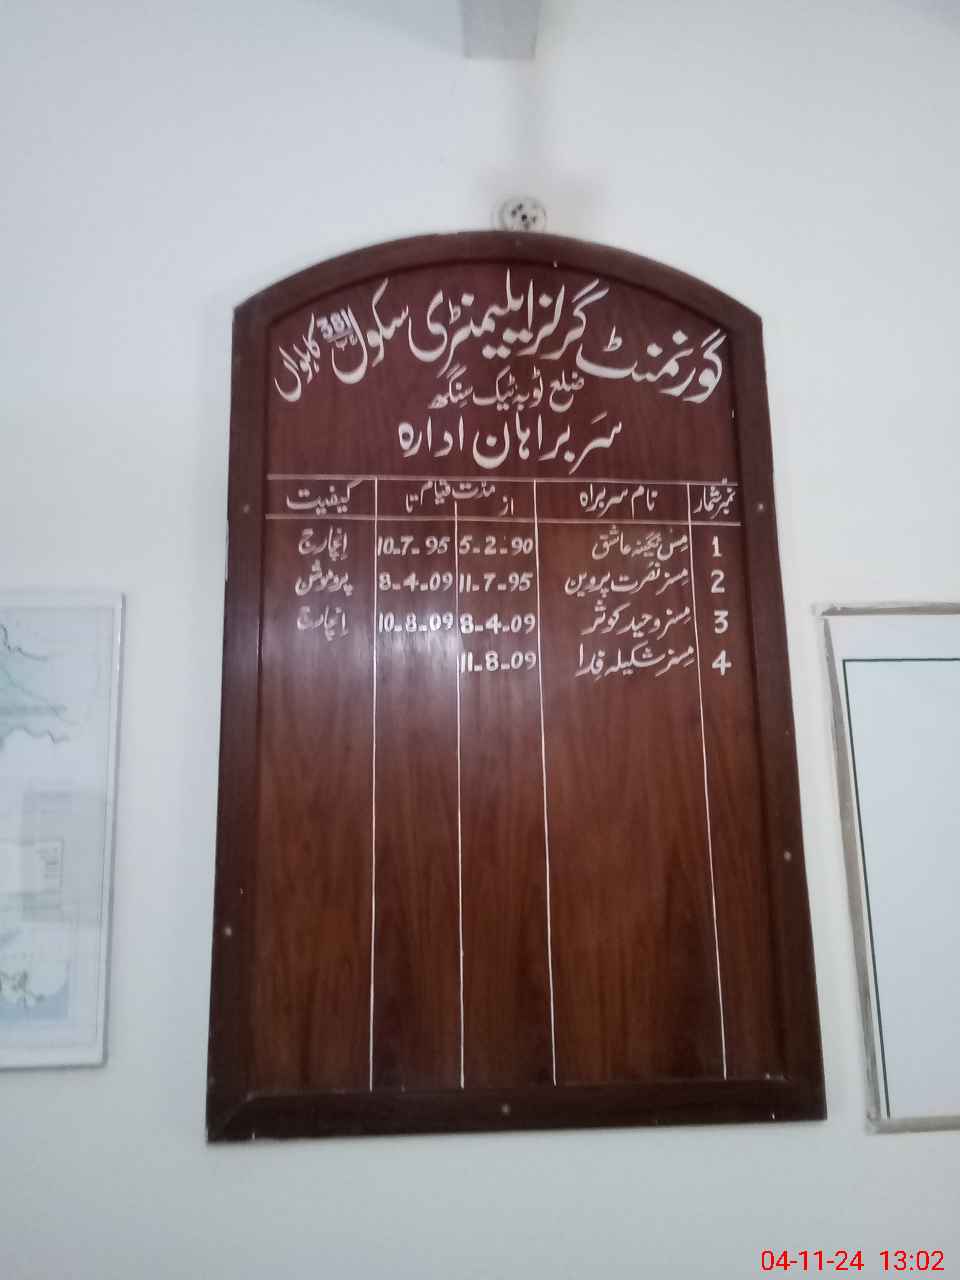 گورنمنٹ گرلز ایلیمنٹری سکول 381 ج ب کاہلواں
ضلع ٹوبہ ٹیک سنگھ
سربراہان ادارہ
نمبر شمار نام سربراہ مدت قیام کیفیت
از تا
1 مس نگینہ عاشق 5-2-90 10-7-95 انچارج
2 مسز نصرت پروین 11-7-95 8-4-09 پروموشن
3 مسز وحید کوثر 8-4-09 10-8-09 انچارج
4 مسز شکیلہ فدا 11-8-09
04-11-24 13:02